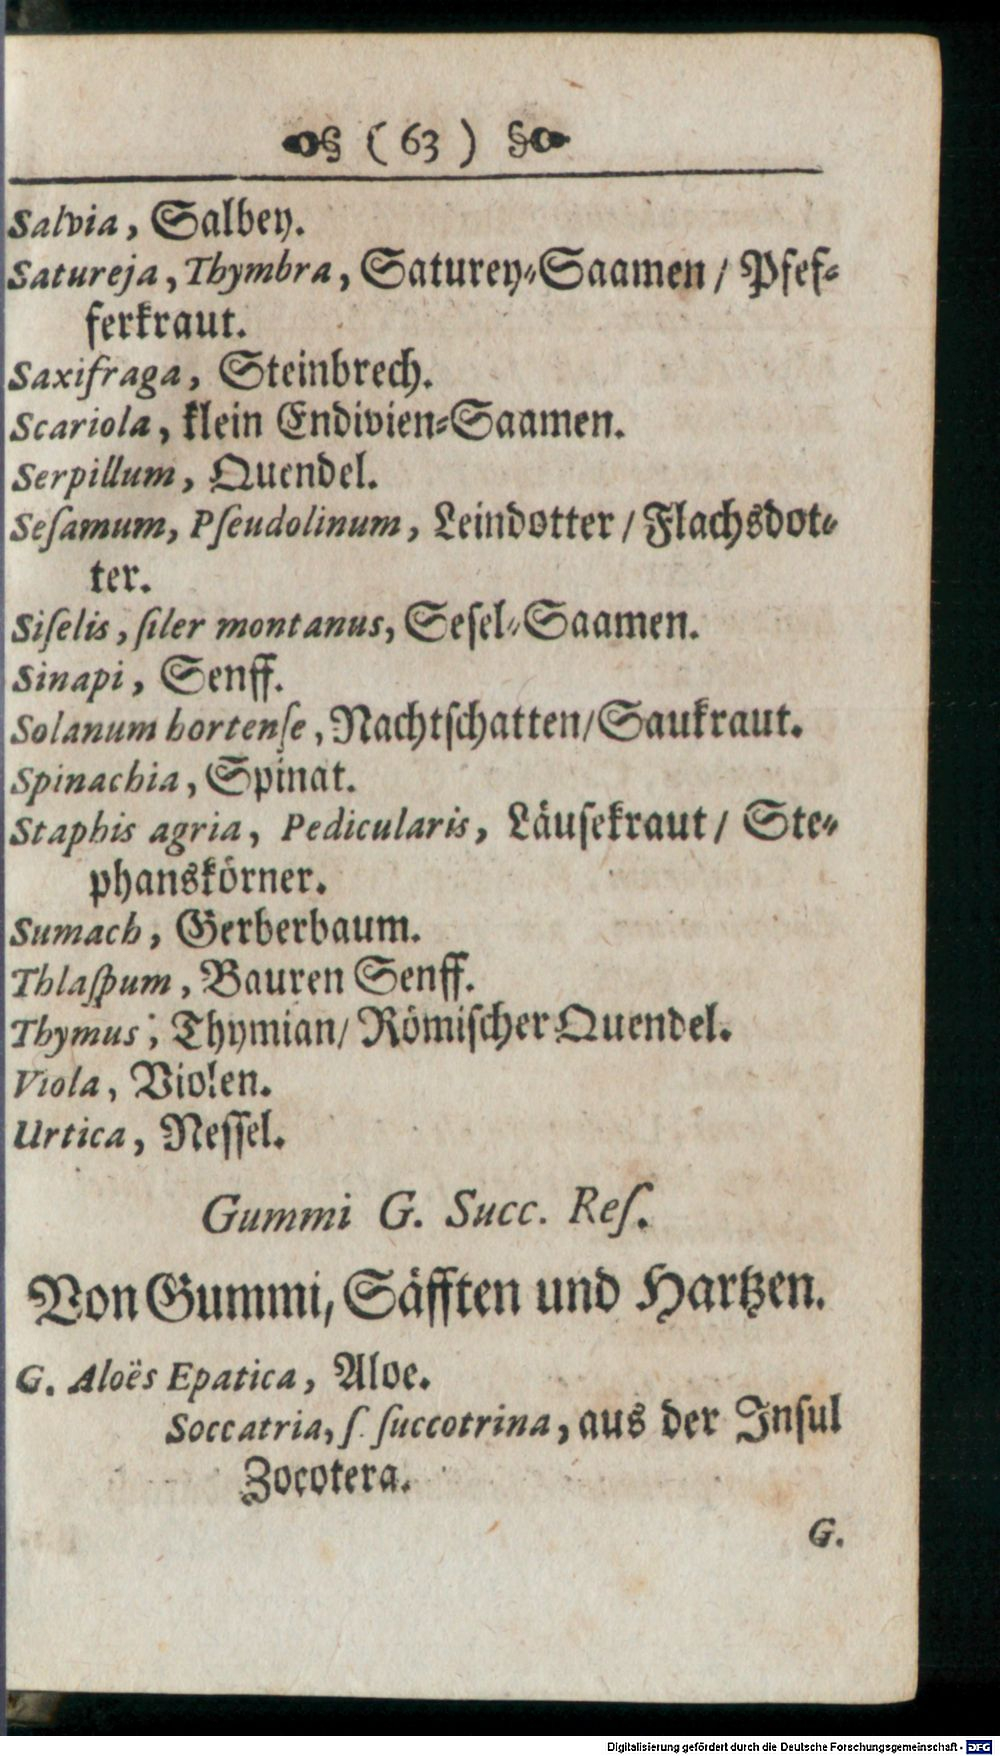 § ( 63 ) §
Salvia, Salbey.
Satureja, Thymbra, Saturey-Saamen / Pfef-
ferkraut.
Saxifraga, Steinbrech.
Scariola, klein Endivien-Saamen.
Serpillum, Quendel.
Seſamum, Pſeudolinum, Leindotter / Flachsdot-
ter.
Siſelis, ſiler montanus, Seſel-Saamen.
Sinapi, Senff.
Solanum hortenſe, Nachtſchatten/Saukraut.
Spinachia, Spinat.
Staphis agria, Pedicularis, Läuſekraut / Ste-
phanskörner.
Sumach, Gerberbaum.
Thlaſpum, Bauren Senff.
Thymus; Thymian/ Römiſcher Quendel.
Viola, Violen.
Urtica, Neſſel.
Gummi G. Succ. Reſ.
Von Gummi, Säfften und Hartzen.
G. Aloës Epatica, Aloe.
Soccatria, ſ. ſuccotrina, aus der Inſul
Zocotera.
G.
Digitalisierung gefördert durch die Deutsche Forschungsgemeinschaft - DFG